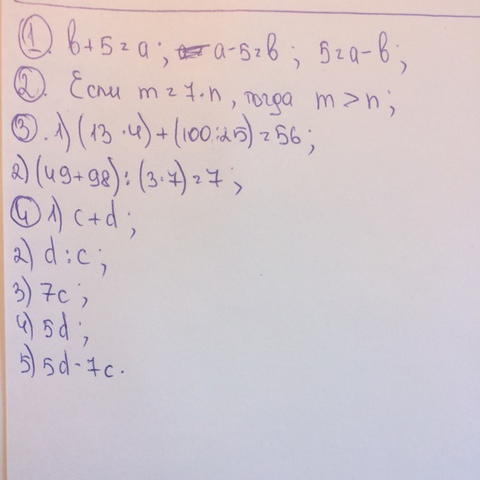 1. b+5=a; a-5=b; 5=a-b;
2. Если m=7·n, тогда m>n;
3. 1) (13·4)+(100:25)=56;
2) (49+98):(3·7)=7;
4 1) c+d;
2) d:c;
3) 7c;
4) 5d;
5) 5d-7c.